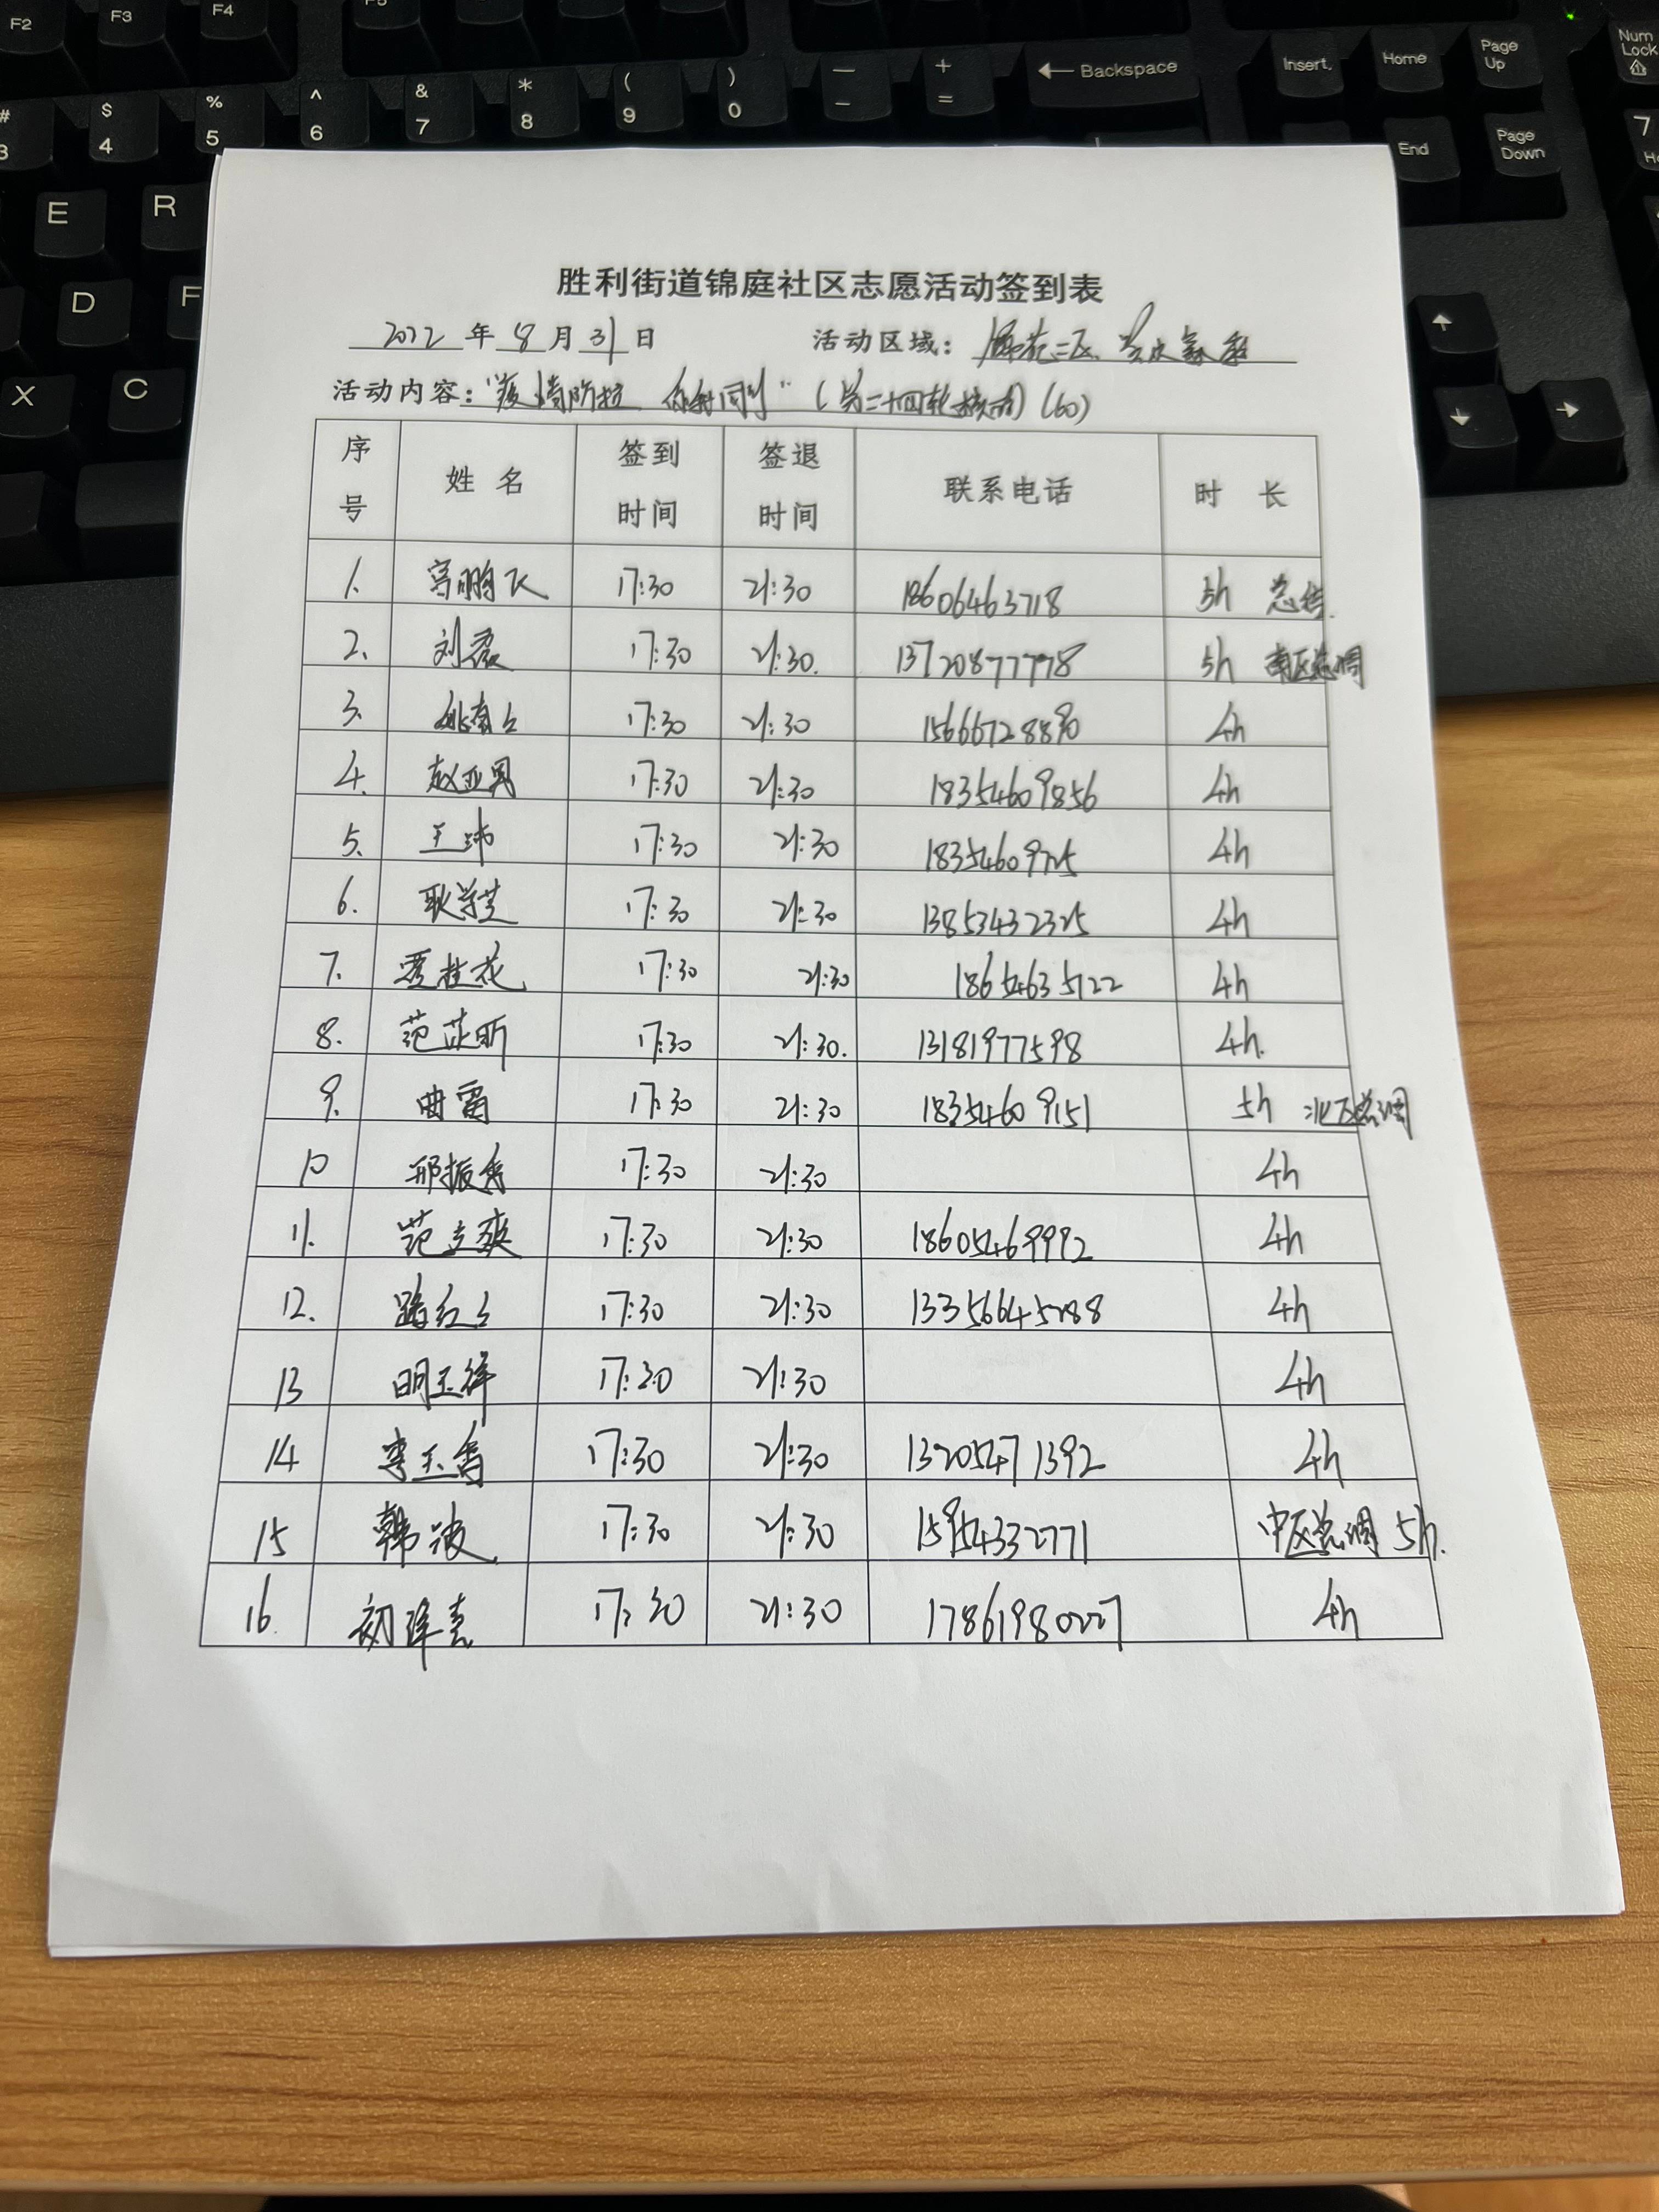 F2 F3 F4 F5
# 3 $ 4 % 5 ^ 6 & 7 * 8 ( 9 ) 0 — - + = ← Backspace Insert Home Page Up Num Lock
End Page Down 7
E R
D F
X C
胜利街道锦庭社区志愿活动签到表
2022 年 8 月 31 日 活动区域：
活动内容："疫情防控 你我同行"（第二十四轮核酸）(60)
序号 姓名 签到时间 签退时间 联系电话 时长
1. 17:30 21:30 18606463718 5h
2. 刘 17:30 21:30. 13720877778 5h 南区总调
3. 17:30 21:30 15666728890 4h
4. 赵亚男 17:30 21:30 18354609856 4h
5. 王玮 17:30 21:30 18354609725 4h
6. 耿 17:30 21:30 13853432325 4h
7. 桂花 17:30 21:30 18654635122 4h
8. 范芷昕 17:30 21:30. 13181977598 4h.
9. 曲雷 17:30 21:30 18354609151 5h 北区总调
10 邢振香 17:30 21:30 4h
11. 范立爽 17:30 21:30 18605469992 4h
12. 路红 17:30 21:30 13356645288 4h
13 明玉祥 17:30 21:30 4h
14 李玉香 17:30 21:30 13205471392 4h
15 韩波 17:30 21:30 15954332771 中区总调 5h.
16. 初 17:30 21:30 17861980227 4h